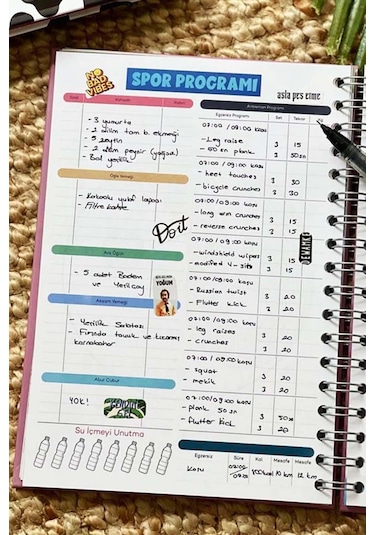 NO BAD VIBES
SPOR PROGRAMI
asla pes etme
Saat Kahvaltı Kalori
- 3 yumurta
- 2 dilim tam b. ekmeği
- 5 zeytin
- 2 dilim peynir (yağsız)
- Bol yeşillik
Öğle Yemeği
- Kakaolu yulaf lapası
- Filtre kahve
Do it
Ara Öğün
- 5 adet Badem
ve Yeşil çay
YOĞUN
Akşam Yemeği
- Yeşillik Salatası
- Fırında tavuk ve
karnabahar
Abur Cubur
YOK!
Su İçmeyi Unutma
Antrenman Programı
Egzersiz Programı Set Tekrar
07:00 / 09:00 koşu
- Leg raise 3 15
- 50 sn plank 3 50sn
07:00 / 09:00 koşu
- heel touches 3 30
- bicycle crunches 3 30
07:00 / 09:00 koşu
- long arm crunches 3 15
- reverse crunches 3 15
07:00 / 09:00 koşu
- windshield wipers 3 15
- modified v-sits 3 15
07:00 / 09:00 koşu
- Russian twist 3 20
- Flutter kick 3 20
07:00 / 09:00 koşu
- leg raises 3 20
- crunches 3 20
07:00 / 09:00 koşu
- squat 3 20
- mekik 3 20
07:00 / 09:00 koşu
- plank 50 sn 3 50sn
- flutter kick 3 20
Egzersiz Süre Kal Mesafe Mesafe
Koşu 07:00 10 km 12 km